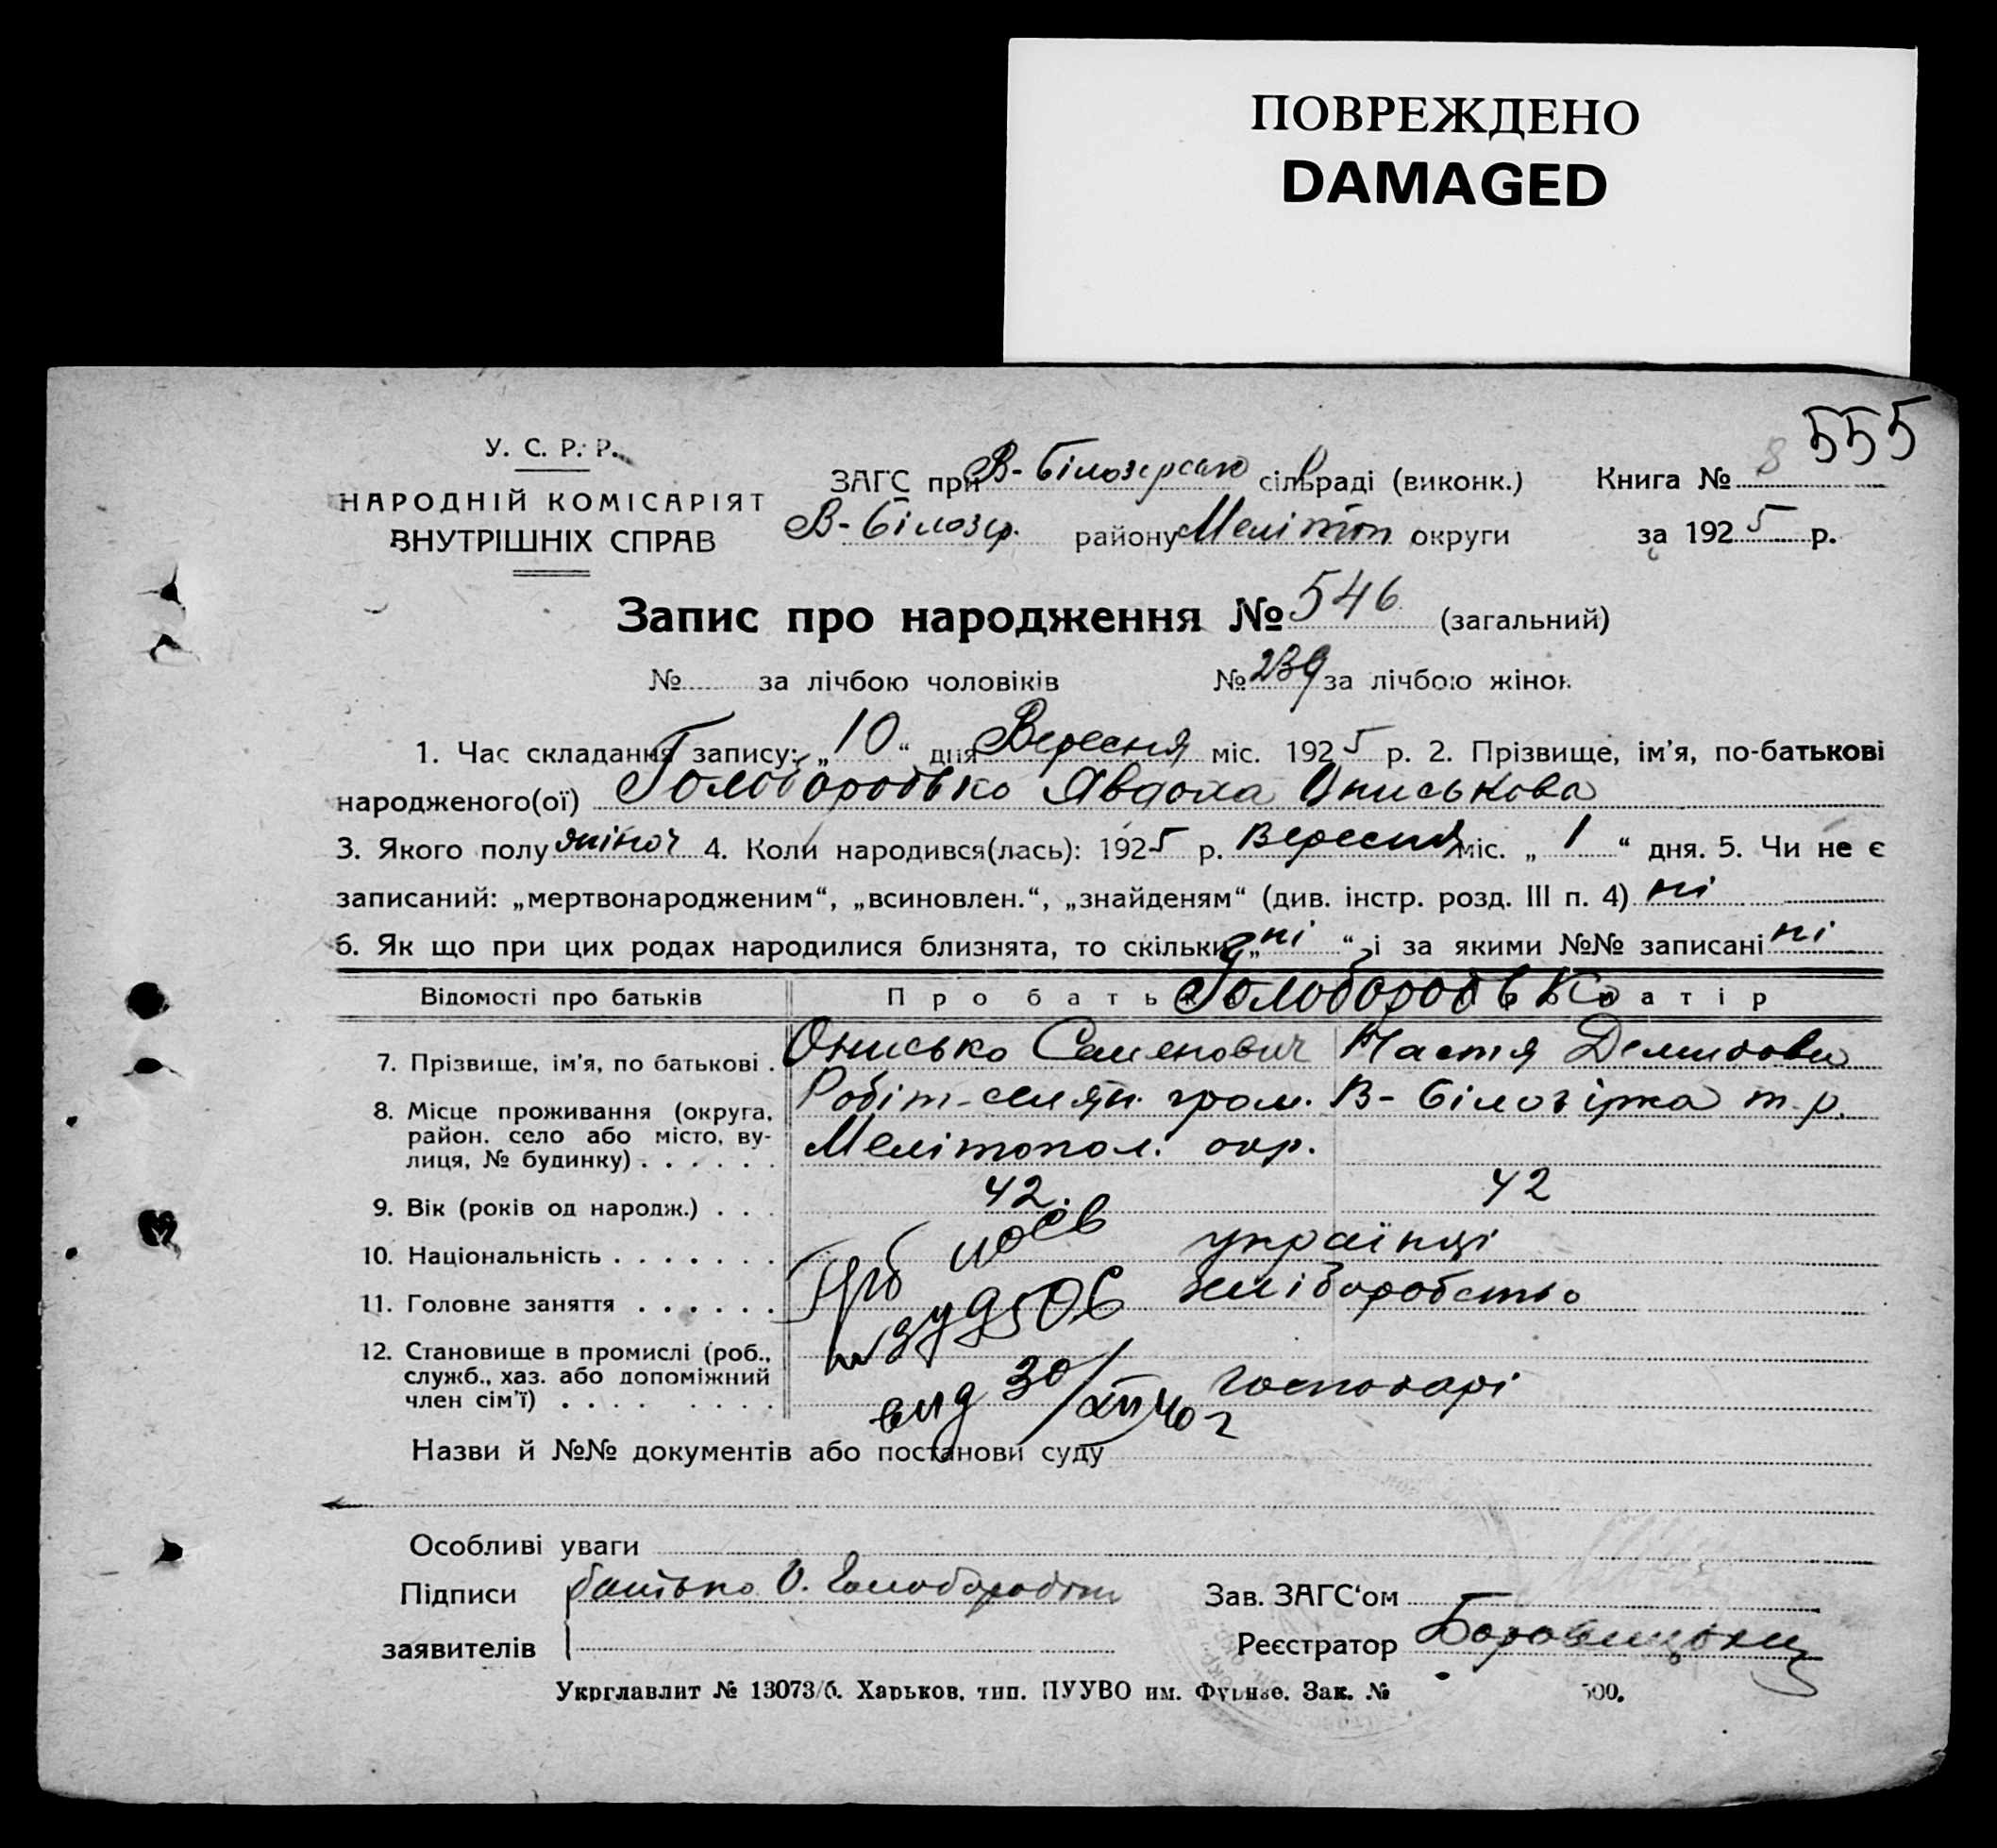 ПОВРЕЖДЕНО
DAMAGED
555
У. С. Р. Р.
НАРОДНІЙ КОМІСАРІЯТ
ВНУТРІШНІХ СПРАВ
ЗАГС при В-Білозерсько сільраді (виконк.) Книга № 8
В-Білозер. району Меліт оп округи за 1925 р.
Запис про народження № 546 (загальний)
№ за лічбою чоловіків № 239 за лічбою жінок
1. Час складання запису: „10“ дня Вересня міс. 1925 р. 2. Прізвище, ім’я, по-батькові
народженого(ої) Голобородько Явдоха Ониськова
3. Якого полу жіноч 4. Коли народився(лась): 1925 р. Вересня міс. „1“ дня. 5. Чи не є
записаний: „мертвонародженим“, „всиновлен.“, „знайденям“ (див. інстр. розд. III п. 4) ні
6. Як що при цих родах народилися близнята, то скільки „ні“ і за якими №№ записані ні
Відомості про батьків Про батька Голобородько матір
7. Прізвище, ім’я, по батькові . Онисько Семенович Настя Демидова
8. Місце проживання (округа, район. село або місто, вулиця, № будинку) . . . . . . Робіт-селян. гром. В-Білозірка т. р.
Мелітопол. окр.
9. Вік (років од народж.) . . . 42. 42
10. Національність . . . . . . . українці
11. Головне заняття . . . . . . хліборобство
12. Становище в промислі (роб., служб., хаз. або допоміжний член сім’ї) . . . . . . . . господарі
выд 30/XII 40 г
Назви й №№ документів або постанови суду
Особливі уваги
Підписи батько О. Голобородько Зав. ЗАГС‘ом
заявителів Реєстратор Боровицький
Укрглавлит № 13073/б. Харьков, тип. ПУУВО им. Фрунзе. Зак. № 500.